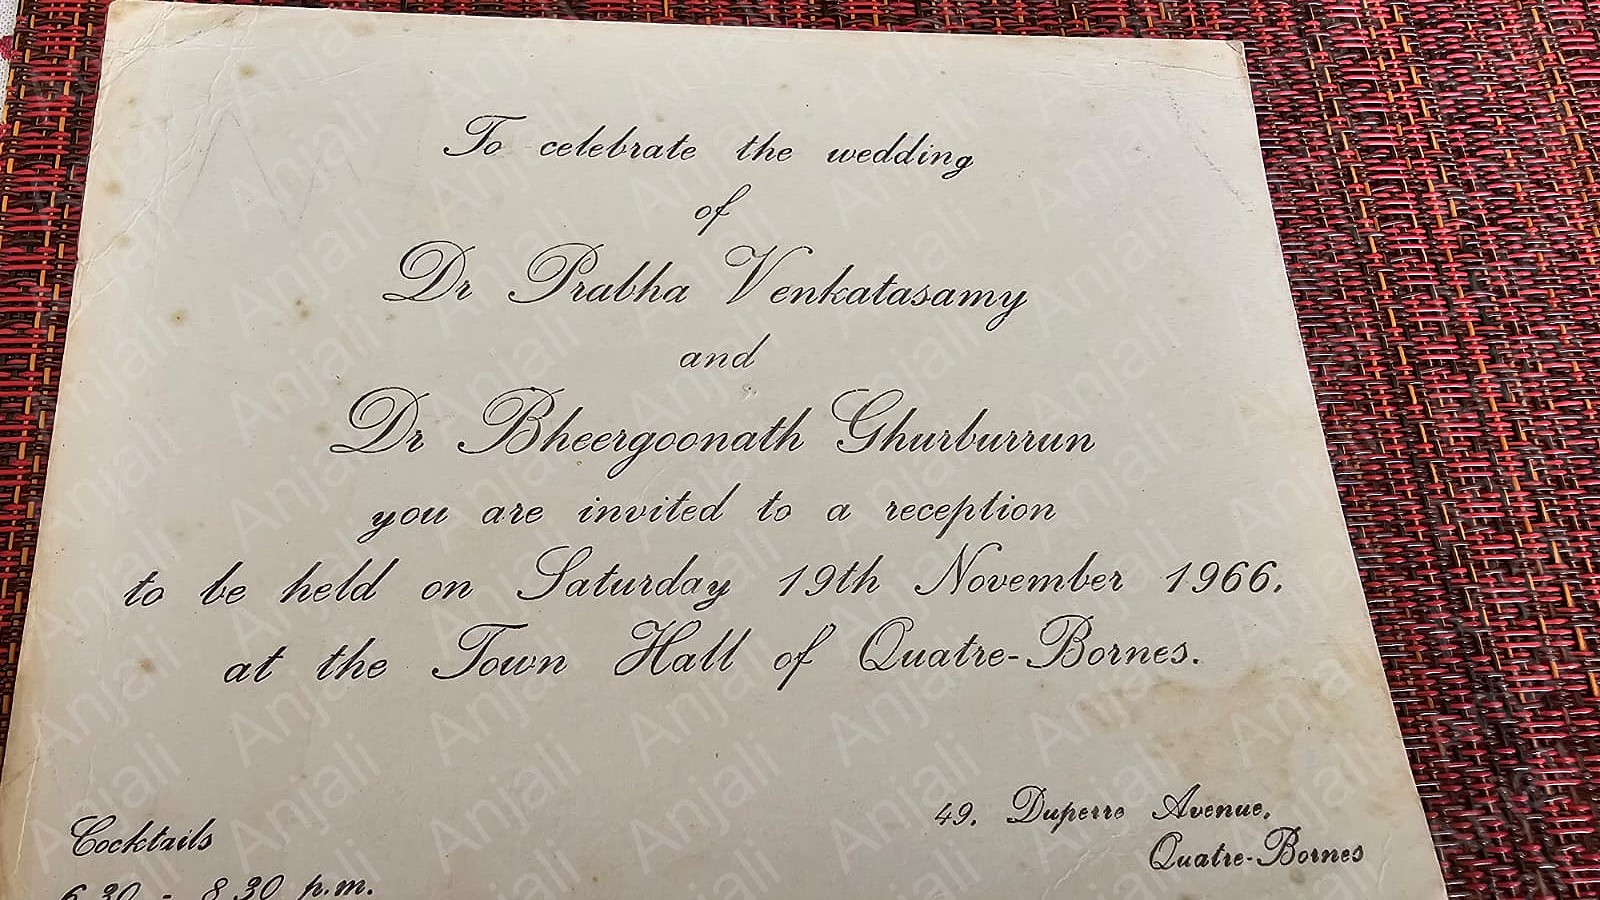 To celebrate the wedding
of
Dr Prabha Venkatasamy
and
Dr Bheergoonath Ghurburrun
you are invited to a reception
to be held on Saturday 19th November 1966.
at the Town Hall of Quatre-Bornes.
49, Duperre Avenue,
Quatre-Bornes
Cocktails
6.30 - 8.30 p.m.
Anjali